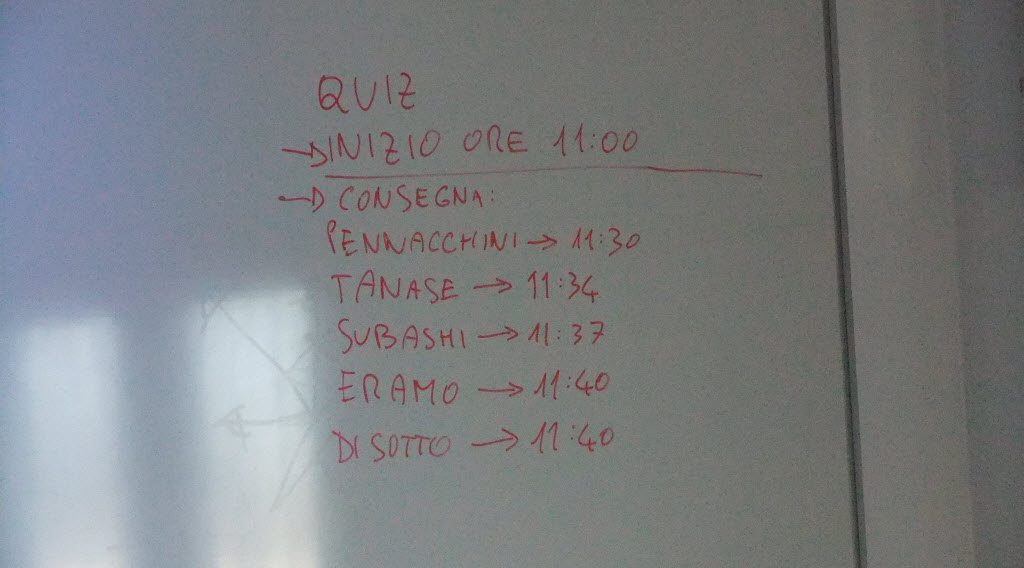 QUIZ
→ INIZIO ORE 11:00
→ CONSEGNA:
PENNACCHINI → 11:30
TANASE → 11:34
SUBASHI → 11:37
ERAMO → 11:40
DI SOTTO → 11:40